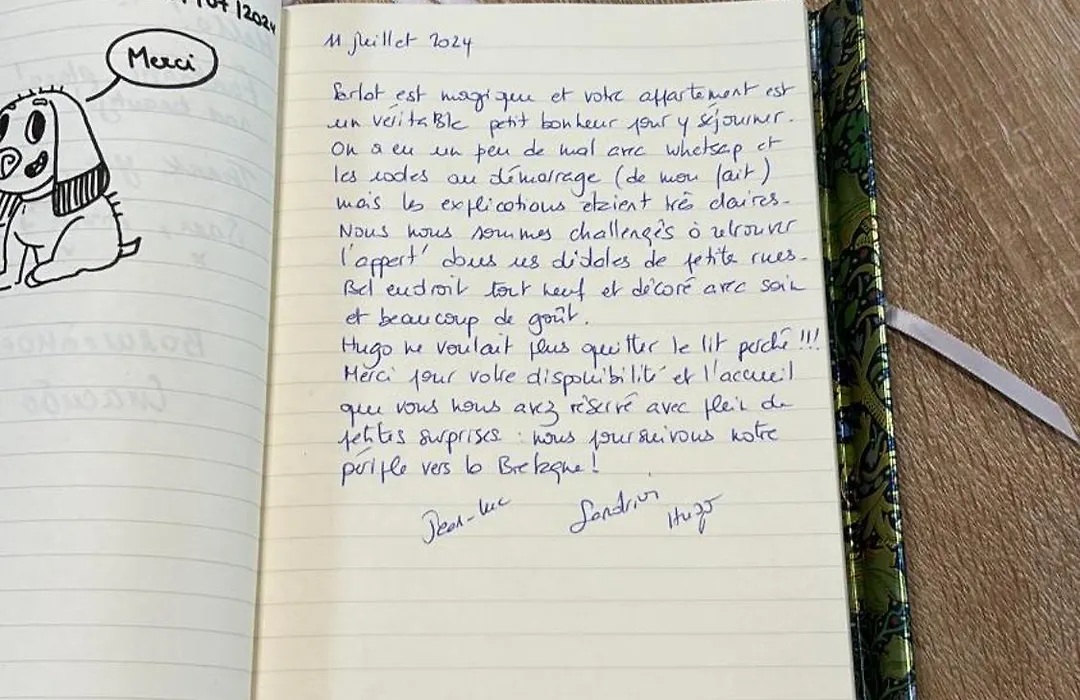 /07/2024
Merci
11 Juillet 2024
Sarlat est magique et votre appartement est
un véritable petit bonheur pour y séjourner.
On a eu un peu de mal avec whatsap et
les codes au démarrage (de mon fait)
mais les explications étaient très claires.
Nous nous sommes challengés à retrouver
l'appart' dans ces dédales de petite rues.
Bel endroit tout neuf et décoré avec soin
et beaucoup de goût.
Hugo ne voulait plus quitter le lit perché !!!
Merci pour votre disponibilité et l'accueil
que vous nous avez réservé avec plein de
petites surprises : nous poursuivons notre
périple vers la Bretagne !
Jean-Luc Sandrine Hugo